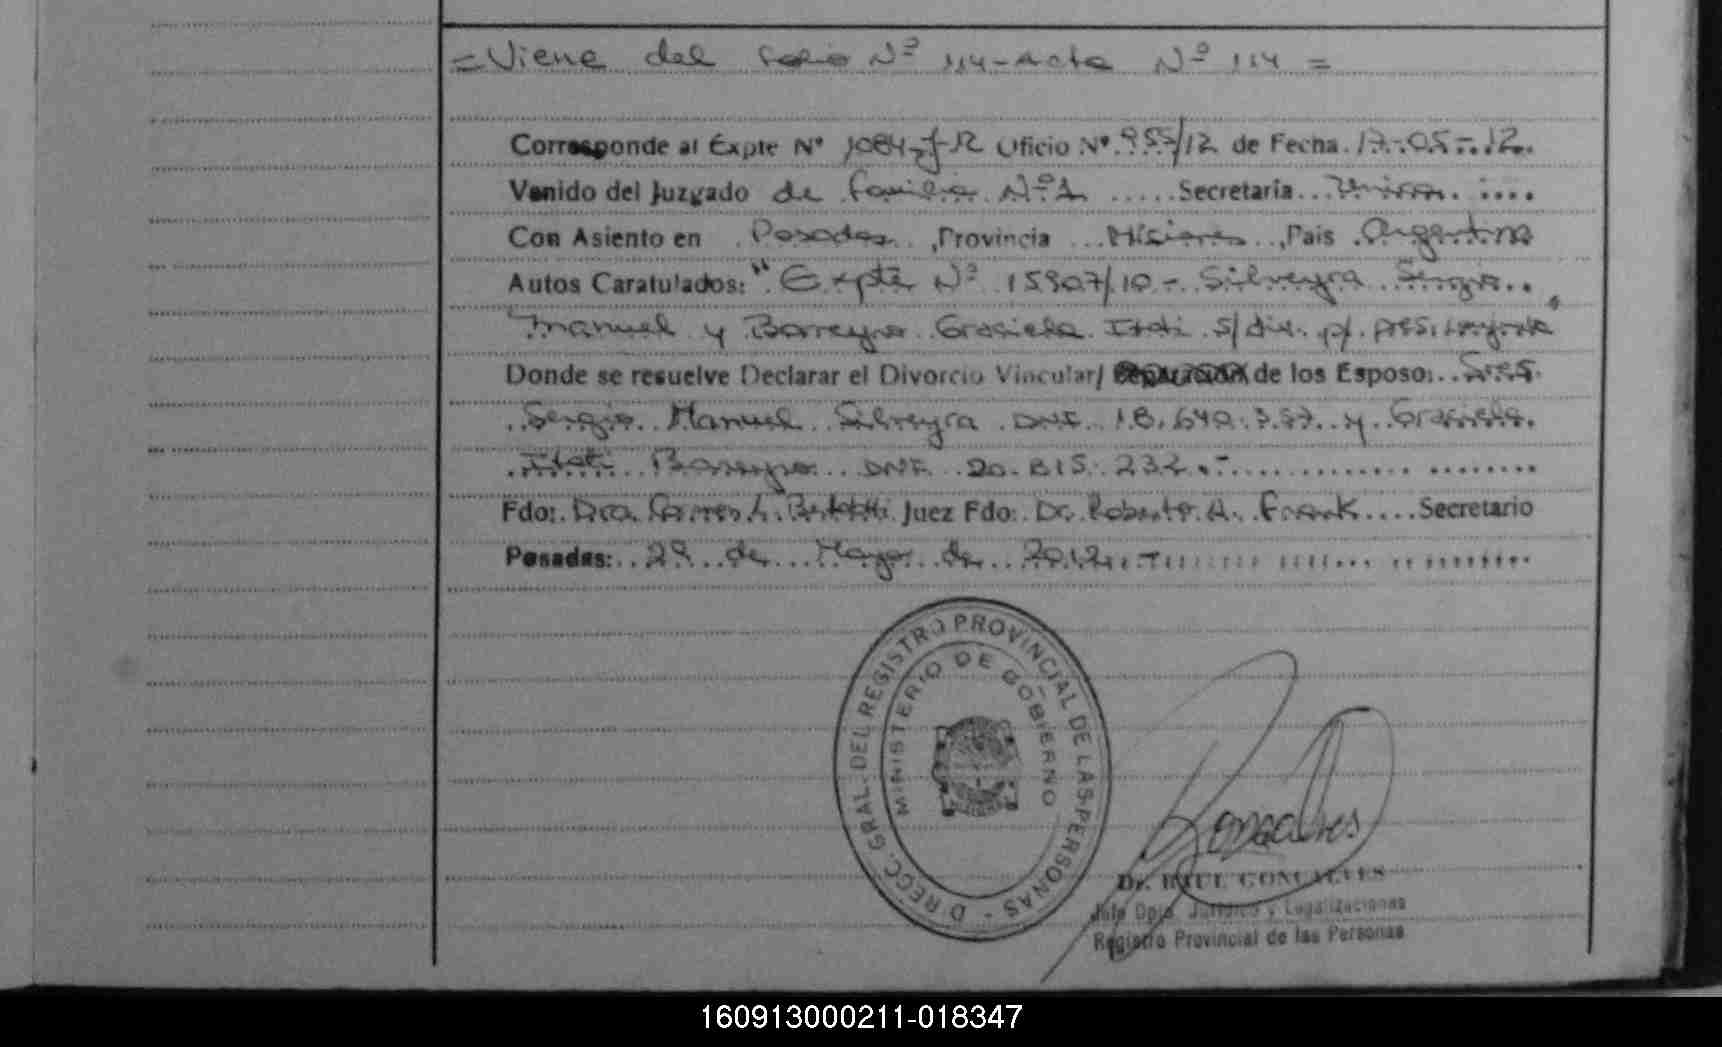 = Viene del folio Nº 114 - Acta Nº 114 =
Corresponde al Expte Nº 1084-J-12 Oficio Nº 955/12 de Fecha 17-05-12.
Venido del Juzgado de Familia Nº 1 Secretaría Única
Con Asiento en Posadas, Provincia Misiones, Pais Argentina
Autos Caratulados: "Expte Nº 15907/10 - Silveyra Sergio
Manuel y Barreyro Graciela Itati s/ div. p/ pres. conjunta"
Donde se resuelve Declarar el Divorcio Vincular/ de los Esposo: Sres
Sergio Manuel Silveyra DNI 18.640.357 y Graciela
Itati Barreyro DNI 20.815.232.-
Fdo: Dra. L. Juez Fdo: Dr. Roberto A. Frank Secretario
Posadas: 29 de Mayo de 2012.-
DIRECC. GRAL. DEL REGISTRO PROVINCIAL DE LAS PERSONAS -
MINISTERIO DE GOBIERNO
Gonçalves
Dr. RAUL GONCALVES
Jefe Dpto. Jurídico y Legalizaciones
Registro Provincial de las Personas
160913000211-018347